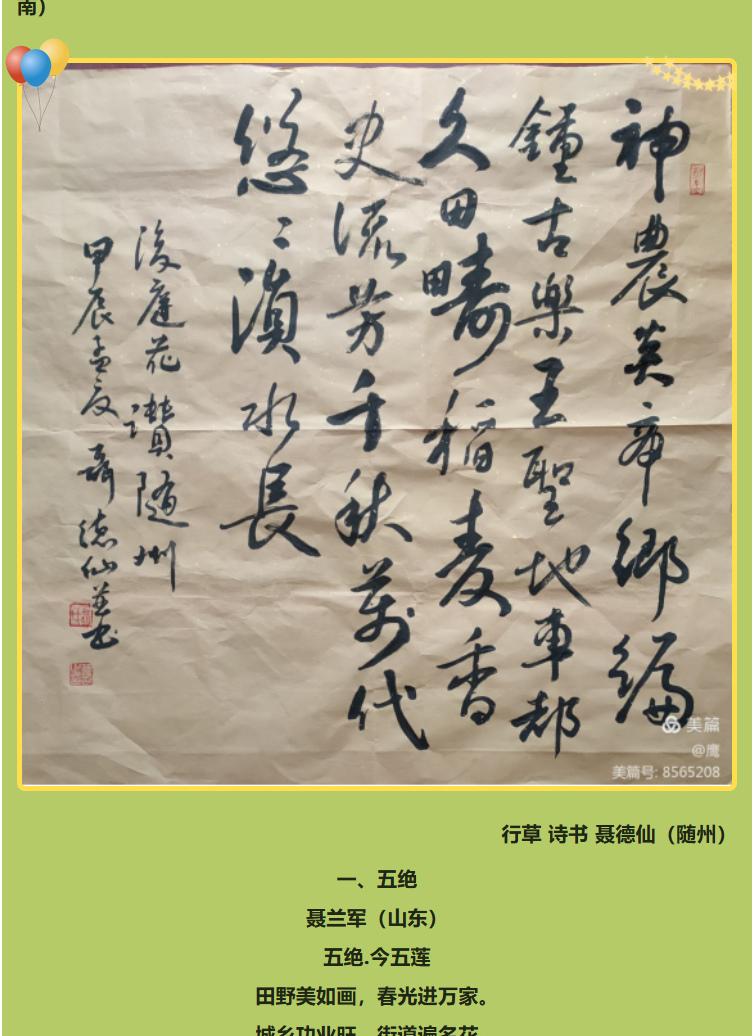 南）
神農炎帝鄉編
鐘古樂王聖地車都
久田疇稻麦香
史流芳千秋萬代
悠〻溳水長
後庭花 讚随州
甲辰孟夏 聶德仙並书
美篇
@鹰
美篇号: 8565208
行草 诗书 聂德仙（随州）
一、五绝
聂兰军（山东）
五绝.今五莲
田野美如画，春光进万家。
城乡功业旺，街道遍名花。